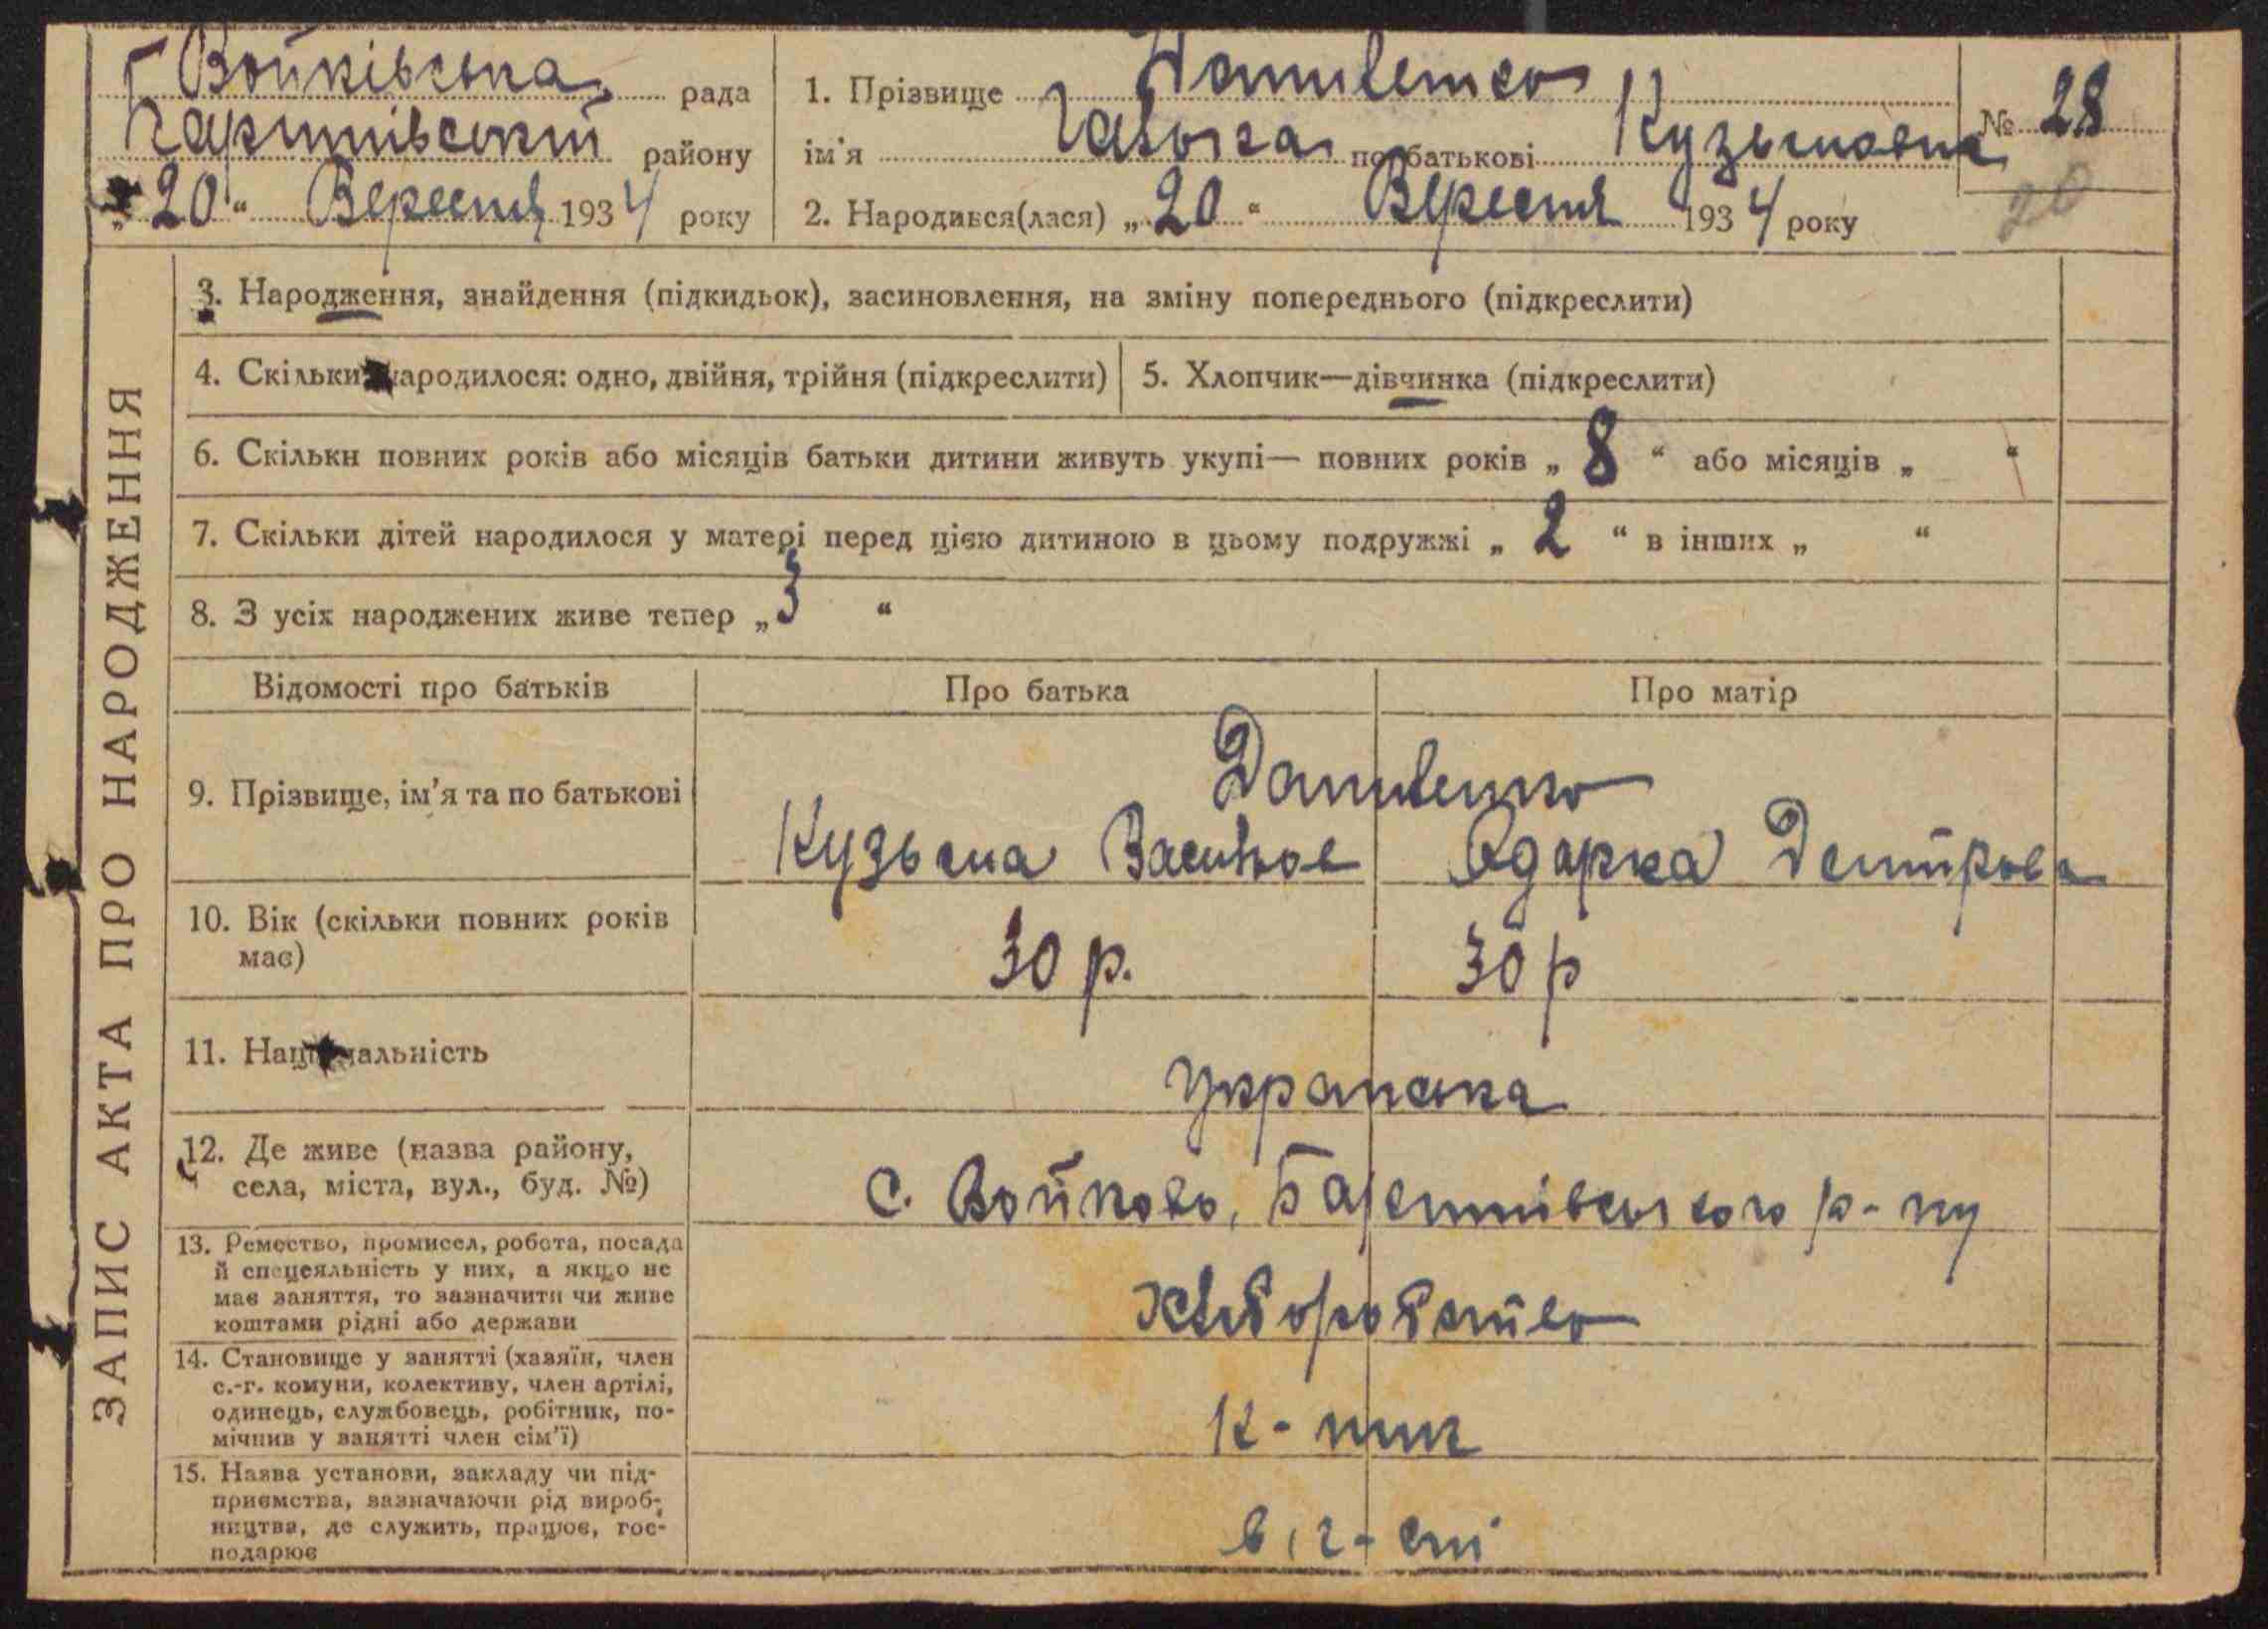 Войківська рада
району
„20“ Вересня 1934 року
1. Прізвище Даниленко
ім'я Галька по батькові Кузьмовна
2. Народився(лася) „20“ Вересня 1934 року
№ 28
20
ЗАПИС АКТА ПРО НАРОДЖЕННЯ
3. Народження, знайдення (підкидьок), засиновлення, на зміну попереднього (підкреслити)
4. Скільки народилося: одно, двійня, трійня (підкреслити)
5. Хлопчик—дівчинка (підкреслити)
6. Скільки повних років або місяців батьки дитини живуть укупі— повних років „8“ або місяців „ “
7. Скільки дітей народилося у матері перед цією дитиною в цьому подружжі „2“ в інших „ “
8. З усіх народжених живе тепер „3 “
Відомості про батьків
Про батька
Про матір
9. Прізвище, ім'я та по батькові
Даниленко
Кузьма Васильов
Одарка Дмитрова
10. Вік (скільки повних років
має)
30 р.
30 р
11. Національність
Українська
12. Де живе (назва району,
села, міста, вул., буд. №)
с. Войково, р-ну
13. Ремество, промисел, робота, посада
й спецеяльність у них, а якщо не
має заняття, то зазначити чи живе
коштами рідні або держави
хліборобство
14. Становище у занятті (хазяїн, член
с.-г. комуни, колективу, член артілі,
одинець, службовець, робітник, по-
мічнив у занятті член сім'ї)
к-ник
15. Назва установи, закладу чи під-
приємства, зазначаючи рід вироб-
ництва, де служить, працює, гос-
подарює